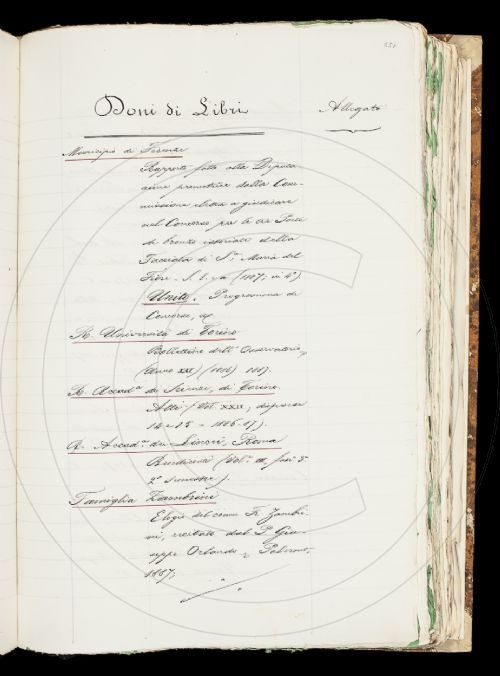 Doni di Libri
Allegato
Municipio di Firenze
Rapporto fatto alla Deputa-
zione promotrice dalla Com-
missione eletta a giudicare
nel Concorso per le tre Porte
di bronzo istoriate della
Facciata di S.ª Maria del
Fiore. S. l. (1887, in 4º)
Unito. Programma di
Concorso,
R. Università di Torino
Bollettino dell' Osservatorio,
(Anno XXI) (1886) 1887.
R. Accad.ª di Scienze, di Torino.
Atti (Vol. XXII, dispensa
14-15 - 1886-87).
R. Accad.ª dei Lincei, Roma
Rendiconti (Vol. III, fasc. 5
2º semestre).
Famiglia Zambrini
Elogio del comm. F. Zambri-
ni, recitato dal P. Giu-
seppe Orlando, Palermo,
1887,